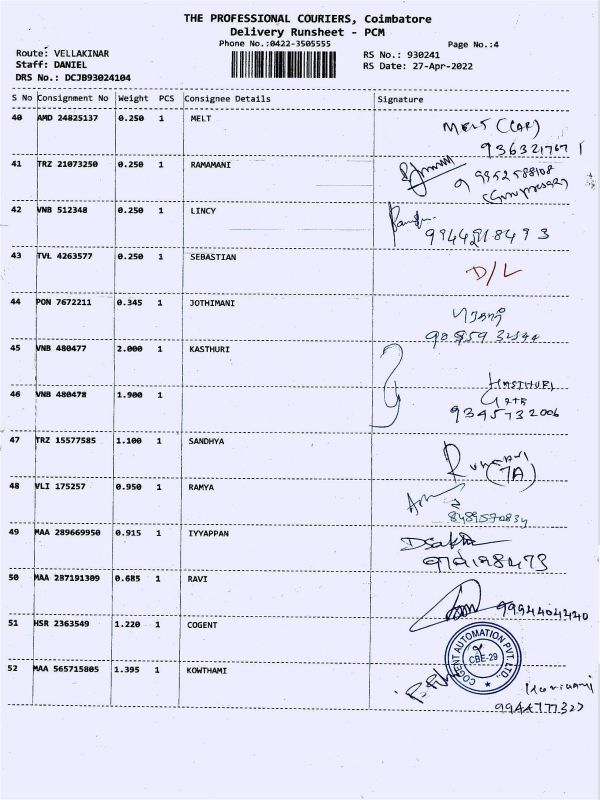 THE PROFESSIONAL COURIERS, Coimbatore
Delivery Runsheet - PCM
Phone No.:0422-3505555
Page No.:4
Route: VELLAKINAR
RS No.: 930241
Staff: DANIEL
RS Date: 27-Apr-2022
DRS No.: DCJB93024104
S No Consignment No Weight PCS Consignee Details Signature
40 AMD 24825137 0.250 1 MELT
MELT (CAR)
9363217671
41 TRZ 21073250 0.250 1 RAMAMANI
9952588108
42 VNB 512348 0.250 1 LINCY
43 TVL 4263577 0.250 1 SEBASTIAN
D/L
44 PON 7672211 0.345 1 JOTHIMANI
45 VNB 480477 2.000 1 KASTHURI
46 VNB 480478 1.900 1
KASTHURI
9345732006
47 TRZ 15577585 1.100 1 SANDHYA
(7A)
48 VLI 175257 0.950 1 RAMYA
8489570834
49 MAA 289669950 0.915 1 IYYAPPAN
50 MAA 287191309 0.685 1 RAVI
9994404440
51 HSR 2363549 1.220 1 COGENT
COGENT AUTOMATION PVT. LTD.
CBE-29
52 MAA 565715805 1.395 1 KOWTHAMI
9944777327